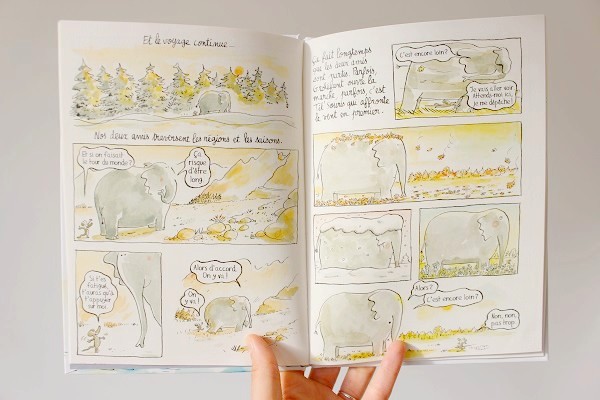 Et le voyage continue...
Nos deux amis traversent les régions et les saisons.
Et si on faisait
le tour du monde ?
Ça
risque
d'être
long.
Si t'es
fatigué,
t'auras qu'à
t'appuyer
sur moi.
Alors d'accord.
On y va !
On
y va !
Ça fait longtemps
que les deux amis
sont partis. Parfois,
ouvre la
marche, parfons, c'est
Tit' Souris qui affronte
le vent en premier.
C'est encore loin ?
Je vais aller voir.
Attends-moi ici,
je me dépêche !
Alors ?
C'est encore loin ?
Non, non,
pas trop.